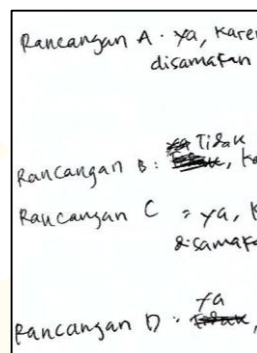 Rancangan A. ya, Karen
disamakan
Tidak
Rancangan B: , Ka
Rancangan C = ya, K
disamaka
ya
Rancangan D. ,